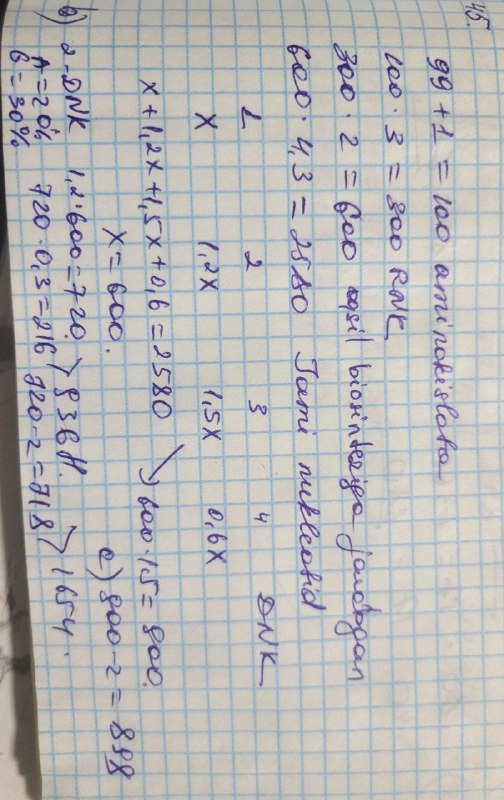 45.
99 + 1 = 100 aminokislota
100 · 3 = 300 RNK
300 · 2 = 600 oqsil biosinteziga javobgan
600 · 4,3 = 2580 Jami nukleotid
1 2 3 4 DNK
x 1,2x 1,5x 0,6x
x + 1,2x + 1,5x + 0,6 = 2580 600 · 1,5 = 900.
x = 600. a) 900 - 2 = 898
b) 2 - DNK 1,2 · 600 = 720. 936 H.
A = 20% 720 · 0,3 = 216 720 - 2 = 718 1654.
G = 30%